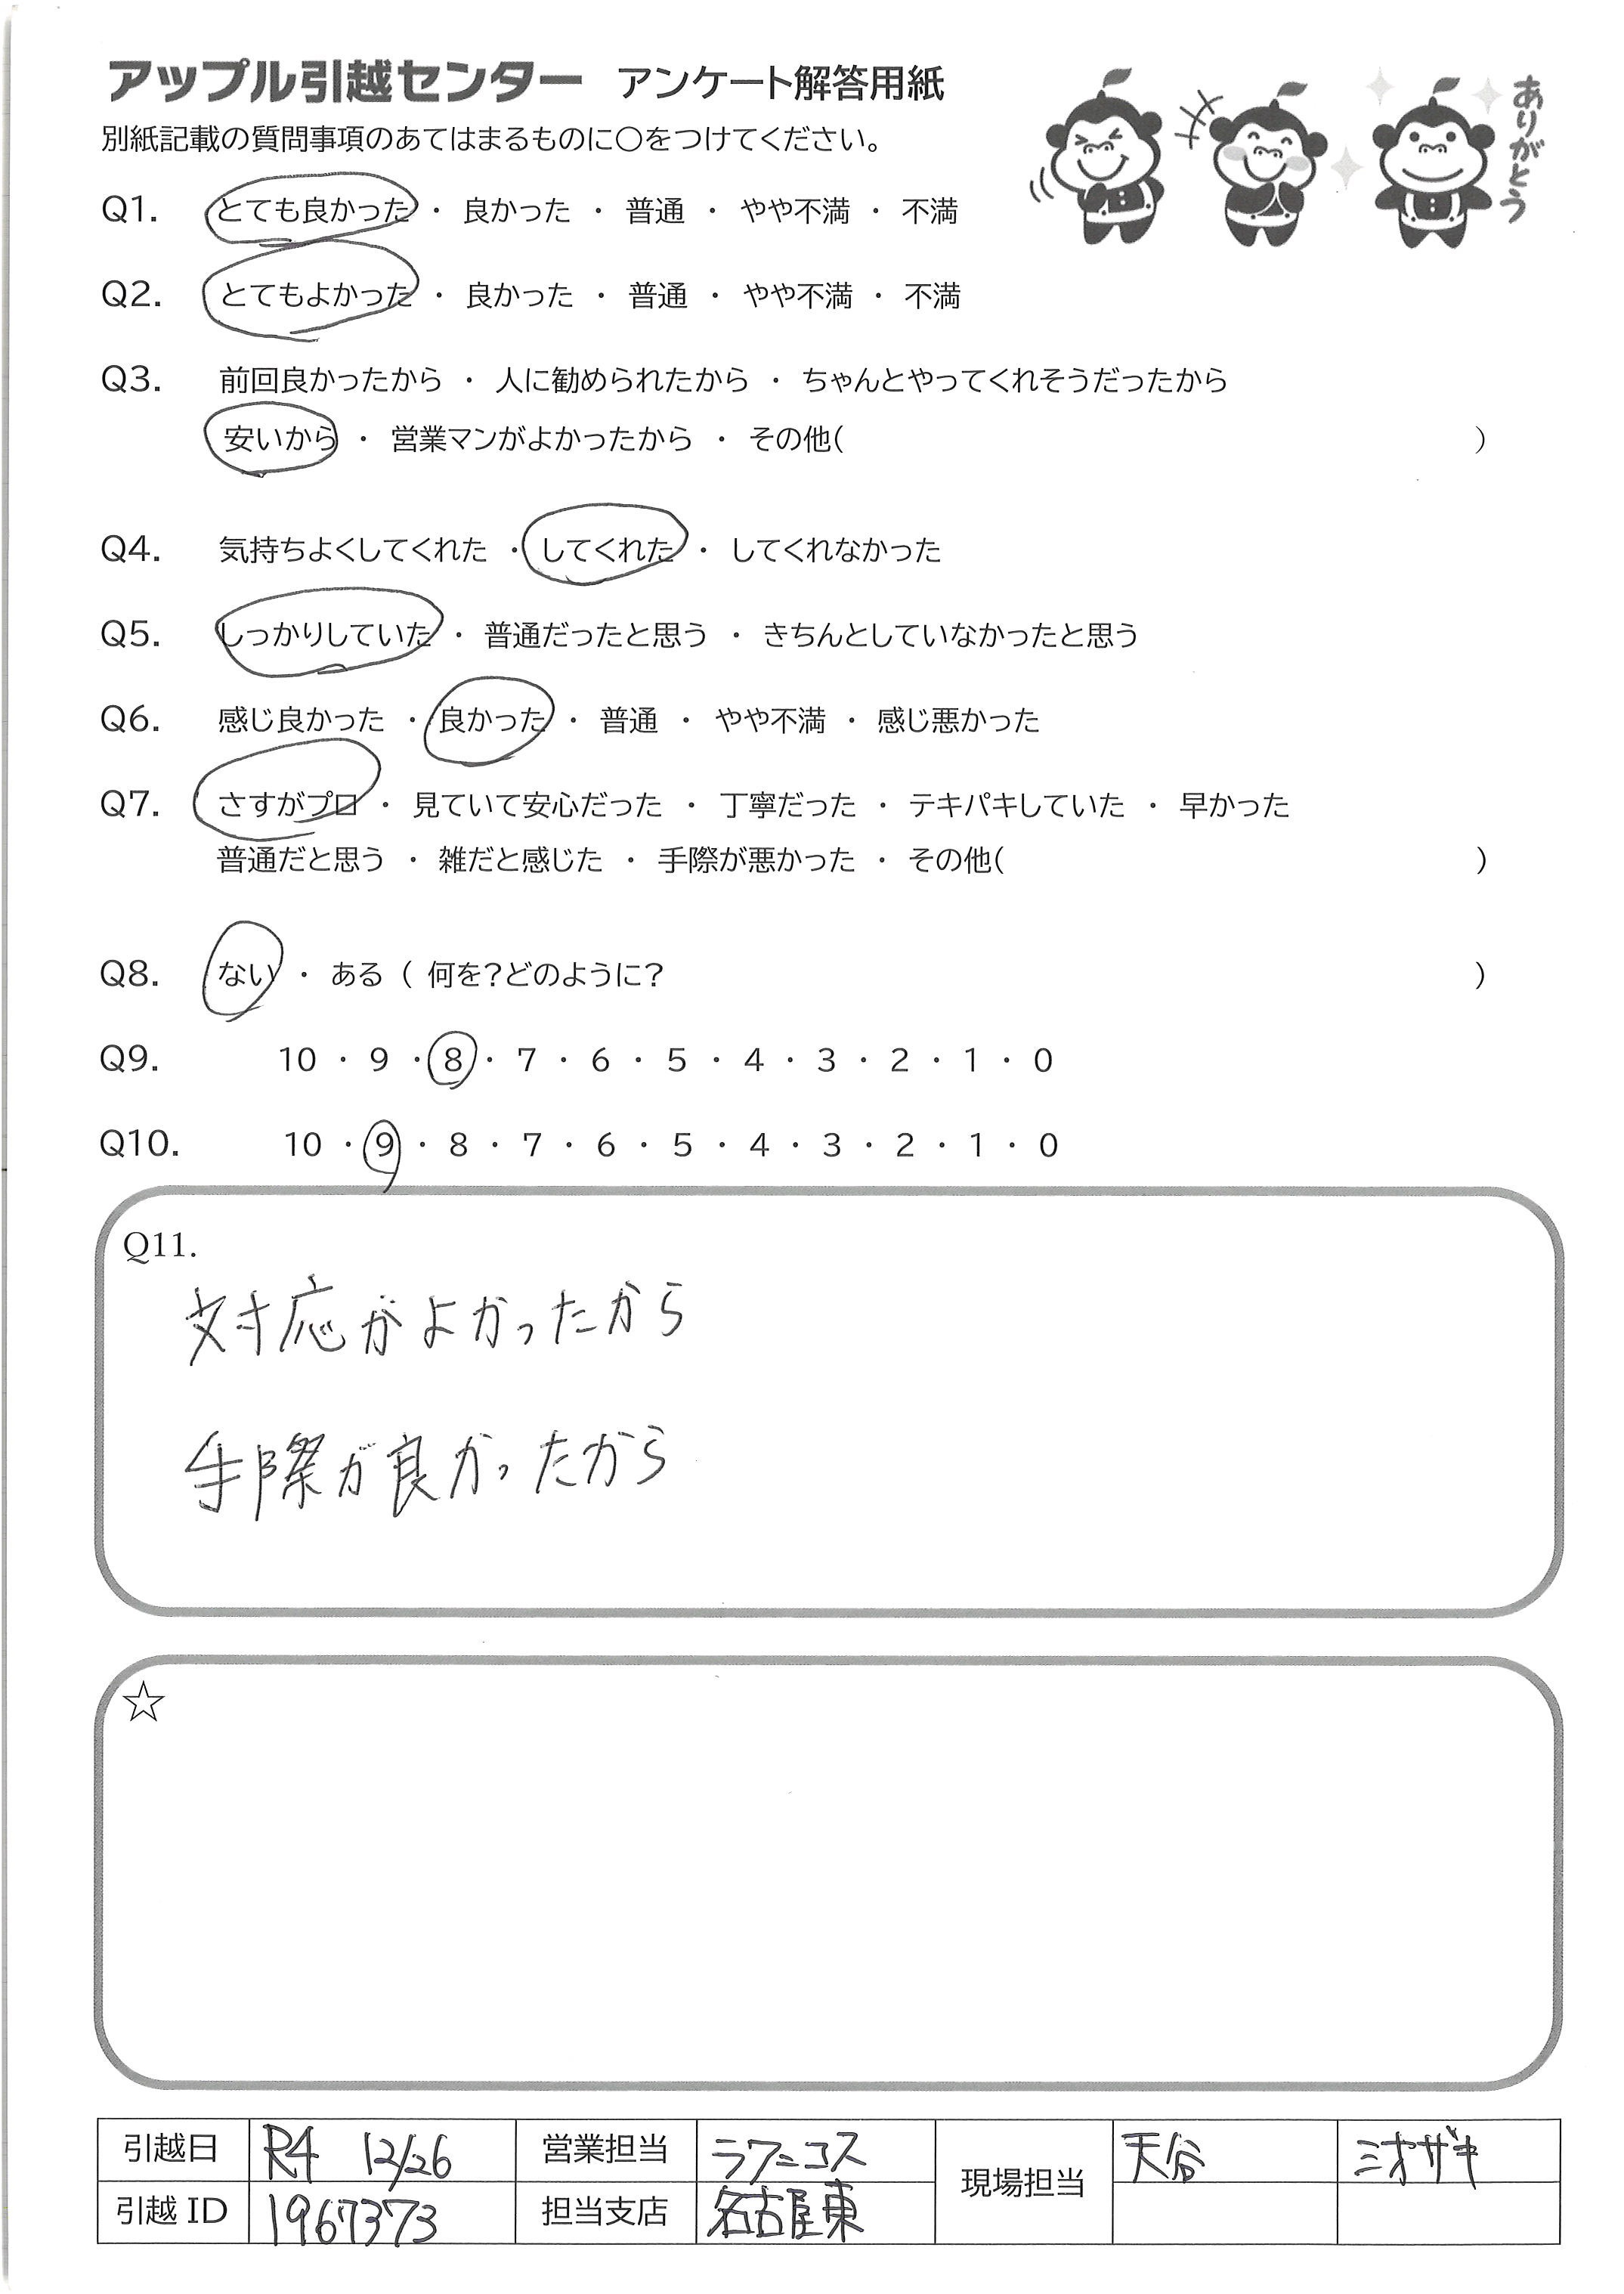 アップル引越センター アンケート解答用紙
ありがとう
別紙記載の質問事項のあてはまるものに〇をつけてください。
Q1. とても良かった ・ 良かった ・ 普通 ・ やや不満 ・ 不満
Q2. とてもよかった ・ 良かった ・ 普通 ・ やや不満 ・ 不満
Q3. 前回良かったから ・ 人に勧められたから ・ ちゃんとやってくれそうだったから
安いから ・ 営業マンがよかったから ・ その他( )
Q4. 気持ちよくしてくれた ・ してくれた ・ してくれなかった
Q5. しっかりしていた ・ 普通だったと思う ・ きちんとしていなかったと思う
Q6. 感じ良かった ・ 良かった ・ 普通 ・ やや不満 ・ 感じ悪かった
Q7. さすがプロ ・ 見ていて安心だった ・ 丁寧だった ・ テキパキしていた ・ 早かった
普通だと思う ・ 雑だと感じた ・ 手際が悪かった ・ その他( )
Q8. ない ・ ある ( 何を?どのように? )
Q9. 10 ・ 9 ・ 8 ・ 7 ・ 6 ・ 5 ・ 4 ・ 3 ・ 2 ・ 1 ・ 0
Q10. 10 ・ 9 ・ 8 ・ 7 ・ 6 ・ 5 ・ 4 ・ 3 ・ 2 ・ 1 ・ 0
Q11.
対応がよかったから
手際が良かったから
☆
引越日 R4 12/26 営業担当 ラフニコス 現場担当 天谷 ミオザキ
引越ID 1967373 担当支店 名古屋東